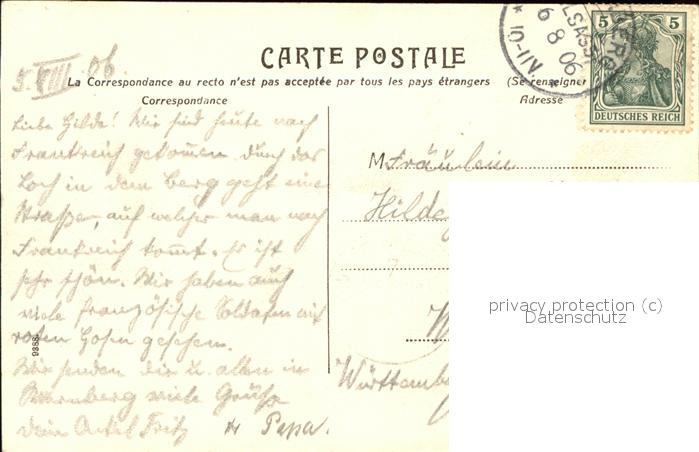 CARTE POSTALE
5.VIII.06.
La Correspondance au recto n'est pas acceptée par tous les pays étrangers (Se renseigner
Correspondance
Adresse
5 5
DEUTSCHES REICH
ELSASS
6 8 06
10-11 N
Liebe Hilde! Wir sind heute nach
Frankreich gekommen. durch das
Loch in dem Berg geht eine
Straße, auf welcher man nach
Frankreich kommt. Es ist
sehr schön. Wir haben auch
viele französische Soldaten mit
roten Hosen gesehen.
Wir senden dir u. allen in
viele Grüße
dein Onkel Fritz u Papa.
M Fräulein
Hilde
W
Württemb
9388
privacy protection (c)
Datenschutz